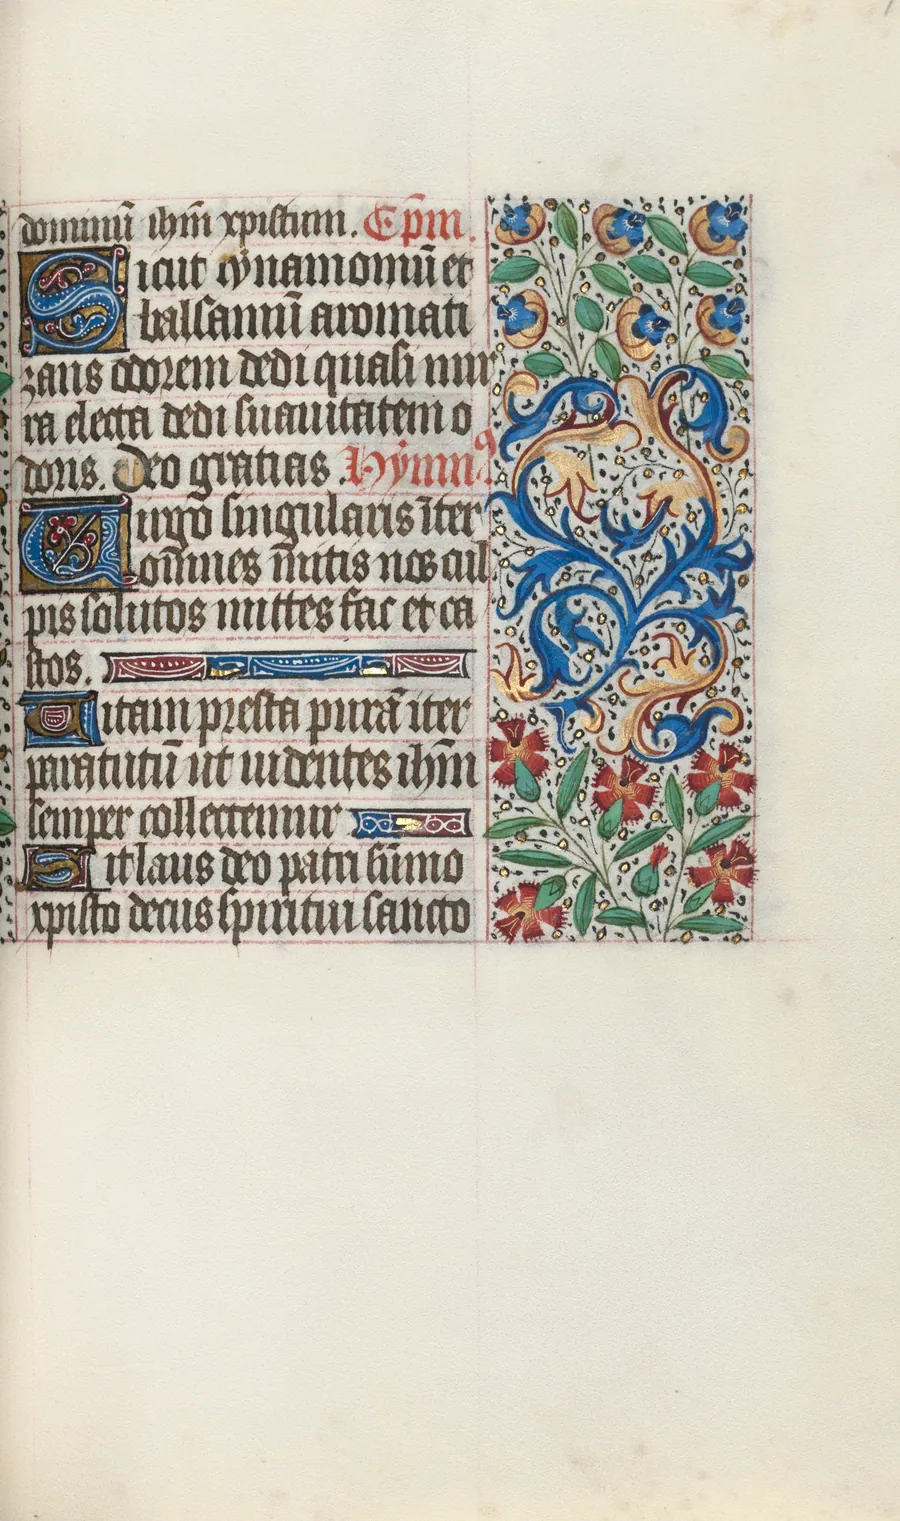 dominū ihm̄ xpistum. Cp̄m.
Sicut cynamomū et
balsamū aromati
zans odorem dedi quasi mir
ra electa dedi suauitatem o
doris. Deo gratias. Hymnꝰ
Uirgo singularis īter
om̄nes mitis nos cul
pis solutos mittes fac et ca
stos.
Uitam presta purā iter
para tutū ut uidentes ihm̄
semper collectemur
Sit laus deo patri sūmo
xpisto decus spiritui sancto